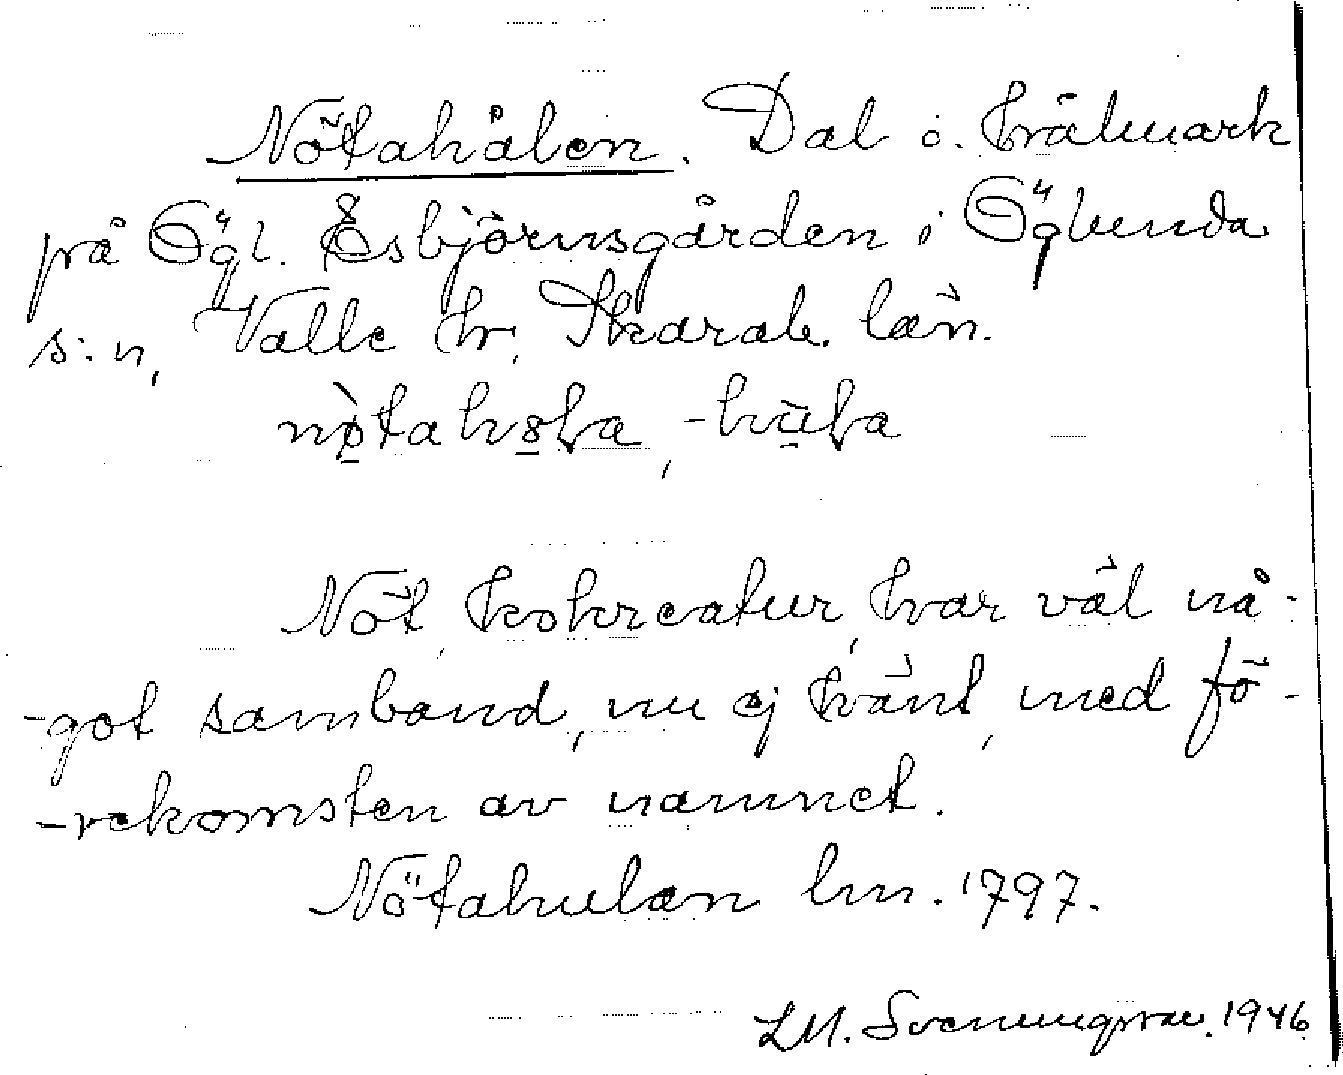 Nötahålen. Dal i. trälmark
på Ögl. Esbjörnsgården i Öglunda
s:n, Valle hr, Skarab. län.
nø̀tahola, -hùla
Nöt, kokreatur, har väl nå-
-got samband, nu ej känt, med fö-
-rekomsten av namnet.
Nötahulan lm. 1797.
LM. Svenungsson. 1946